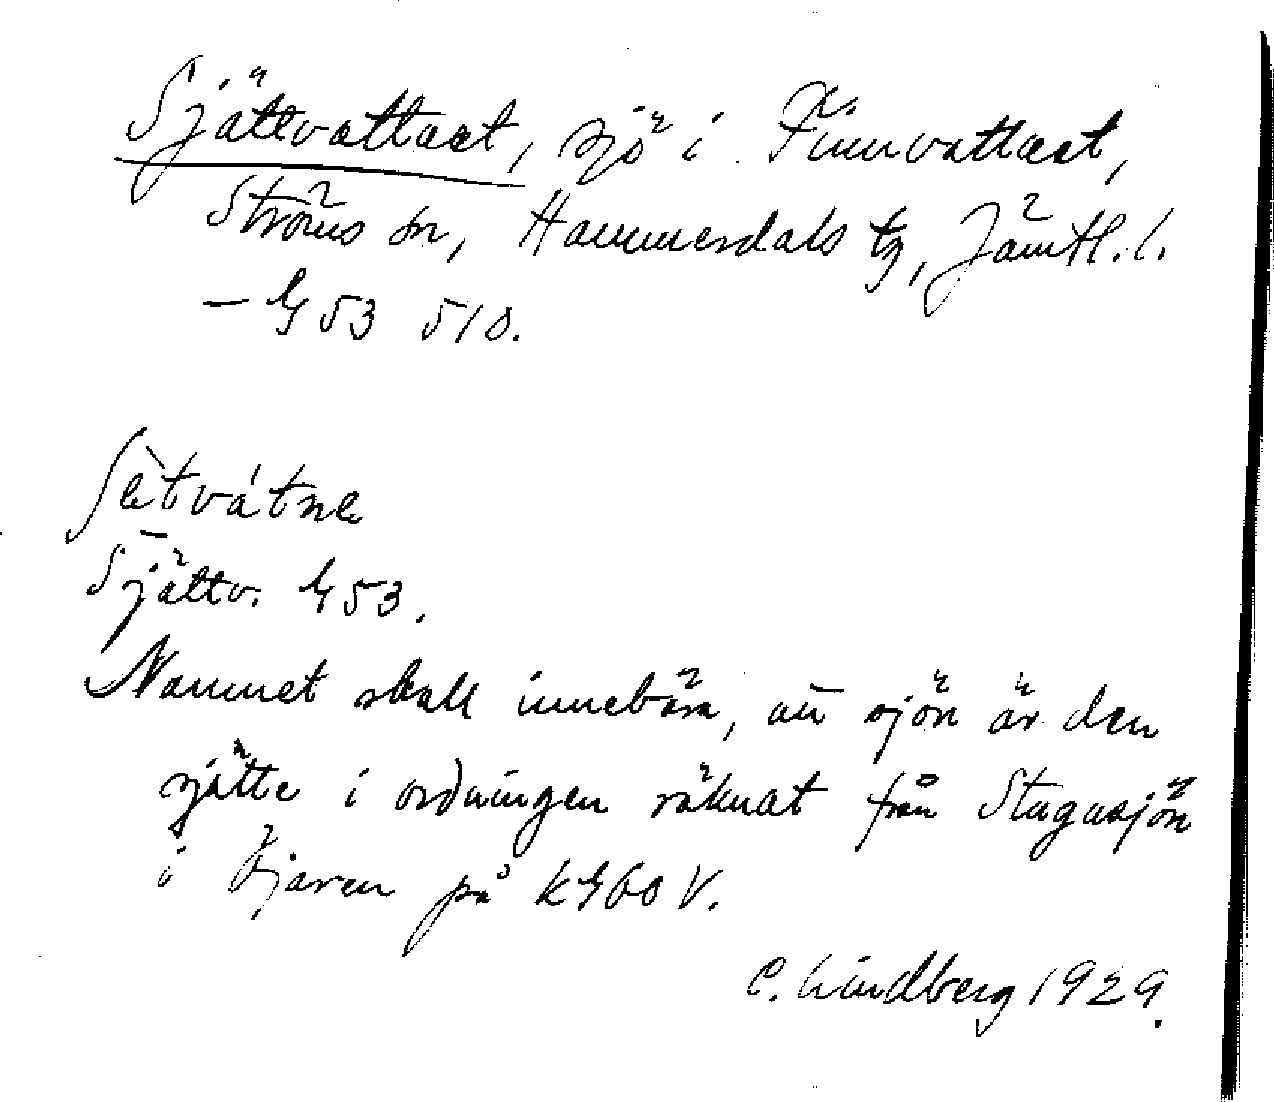 Sjättvattnet, sjö i Finnvattnet,
Ströms sn, Hammerdals tg, Jämtl. l.
– G 53 510.
ʃètvátne
Sjättv. G 53.
Namnet skall innebära, att sjön är den
sjätte i ordningen räknat från Stugusjön
i på kG60 V.
C. Lindberg 1929.